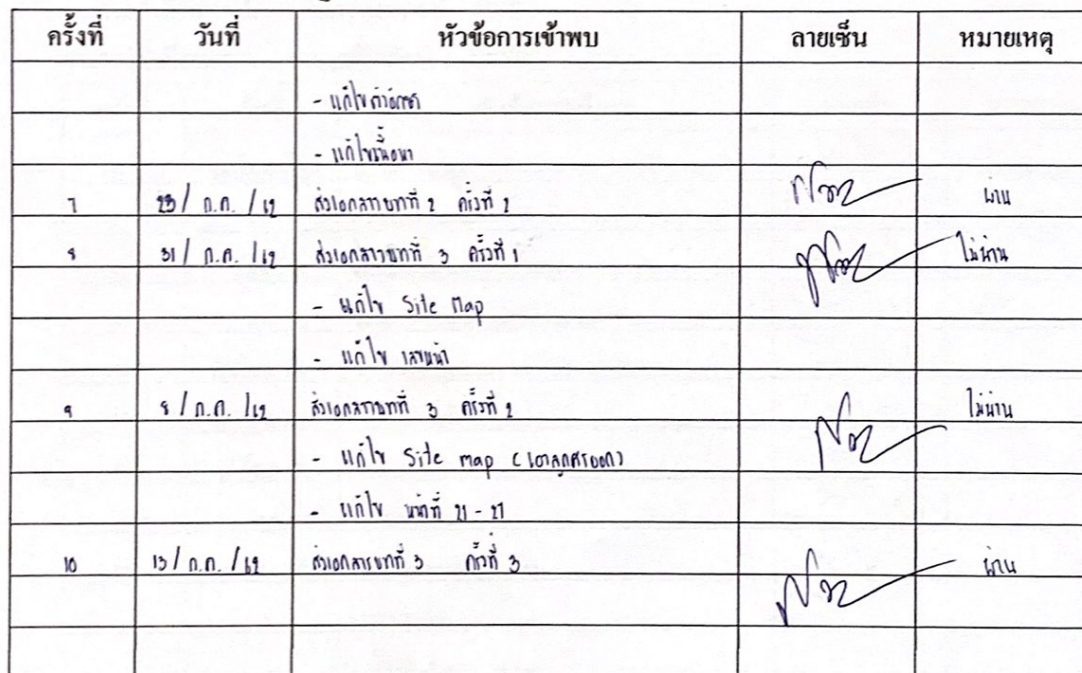 ครั้งที่ วันที่ หัวข้อการเข้าพบ ลายเซ็น หมายเหตุ
- แก้ไขตัวอักษร
- แก้ไขเนื้อหา
7 23 / ก.ค. / 62 ส่งเอกสารบทที่ 2 ครั้งที่ 2 ผ่าน
8 31 / ก.ค. / 62 ส่งเอกสารบทที่ 3 ครั้งที่ 1 ไม่ผ่าน
- แก้ไข Site Map
- แก้ไข เลขหน้า
9 8 / ก.ค. / 62 ส่งเอกสารบทที่ 3 ครั้งที่ 2 ไม่ผ่าน
- แก้ไข Site map (เอาลูกศรออก)
- แก้ไข หน้าที่ 21 - 27
10 13 / ก.ค. / 62 ส่งเอกสารบทที่ 3 ครั้งที่ 3 ผ่าน